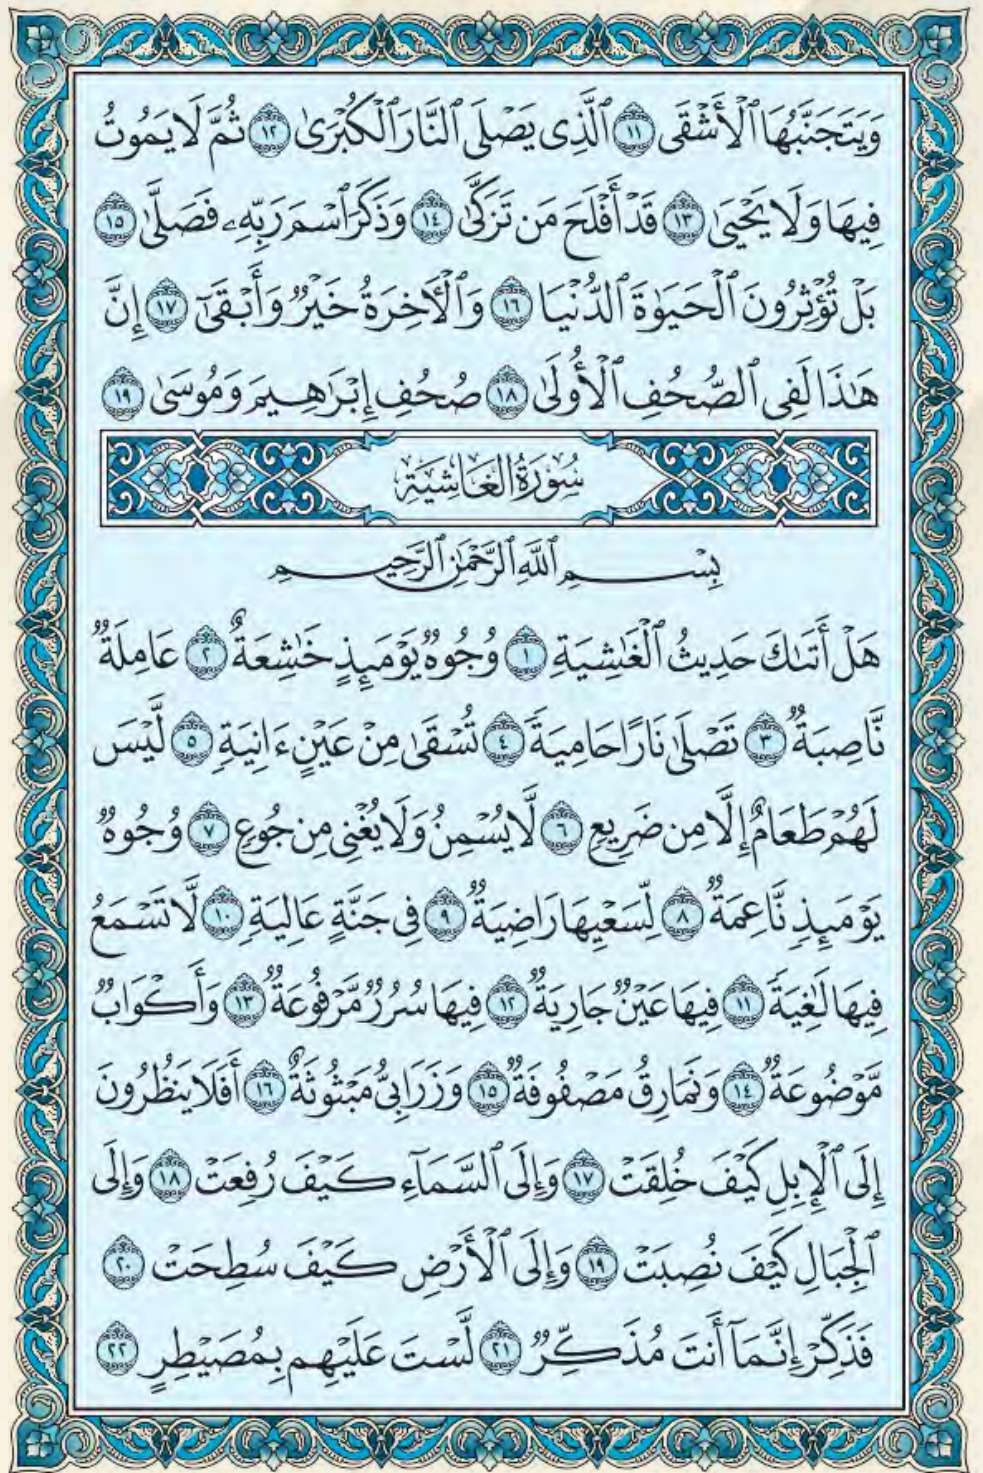 وَيَتَجَنَّبُهَا ٱلْأَشْقَى ١١ ٱلَّذِى يَصْلَى ٱلنَّارَ ٱلْكُبْرَىٰ ١٢ ثُمَّ لَا يَمُوتُ
فِيهَا وَلَا يَحْيَىٰ ١٣ قَدْ أَفْلَحَ مَن تَزَكَّىٰ ١٤ وَذَكَرَ ٱسْمَ رَبِّهِۦ فَصَلَّىٰ ١٥
بَلْ تُؤْثِرُونَ ٱلْحَيَوٰةَ ٱلدُّنْيَا ١٦ وَٱلْـَٔاخِرَةُ خَيْرٌ وَأَبْقَىٰٓ ١٧ إِنَّ
هَـٰذَا لَفِى ٱلصُّحُفِ ٱلْأُولَىٰ ١٨ صُحُفِ إِبْرَٰهِيمَ وَمُوسَىٰ ١٩
سُورَةُ الغَاشِيَةِ
بِسْمِ ٱللَّهِ ٱلرَّحْمَٰنِ ٱلرَّحِيمِ
هَلْ أَتَىٰكَ حَدِيثُ ٱلْغَـٰشِيَةِ ١ وُجُوهٌ يَوْمَئِذٍ خَـٰشِعَةٌ ٢ عَامِلَةٌ
نَّاصِبَةٌ ٣ تَصْلَىٰ نَارًا حَامِيَةً ٤ تُسْقَىٰ مِنْ عَيْنٍ ءَانِيَةٍ ٥ لَّيْسَ
لَهُمْ طَعَامٌ إِلَّا مِن ضَرِيعٍ ٦ لَّا يُسْمِنُ وَلَا يُغْنِى مِن جُوعٍ ٧ وُجُوهٌ
يَوْمَئِذٍ نَّاعِمَةٌ ٨ لِّسَعْيِهَا رَاضِيَةٌ ٩ فِى جَنَّةٍ عَالِيَةٍ ١٠ لَّا تَسْمَعُ
فِيهَا لَـٰغِيَةً ١١ فِيهَا عَيْنٌ جَارِيَةٌ ١٢ فِيهَا سُرُرٌ مَّرْفُوعَةٌ ١٣ وَأَكْوَابٌ
مَّوْضُوعَةٌ ١٤ وَنَمَارِقُ مَصْفُوفَةٌ ١٥ وَزَرَابِىُّ مَبْثُوثَةٌ ١٦ أَفَلَا يَنظُرُونَ
إِلَى ٱلْإِبِلِ كَيْفَ خُلِقَتْ ١٧ وَإِلَى ٱلسَّمَآءِ كَيْفَ رُفِعَتْ ١٨ وَإِلَى
ٱلْجِبَالِ كَيْفَ نُصِبَتْ ١٩ وَإِلَى ٱلْأَرْضِ كَيْفَ سُطِحَتْ ٢٠
فَذَكِّرْ إِنَّمَآ أَنتَ مُذَكِّرٌ ٢١ لَّسْتَ عَلَيْهِم بِمُصَيْطِرٍ ٢٢